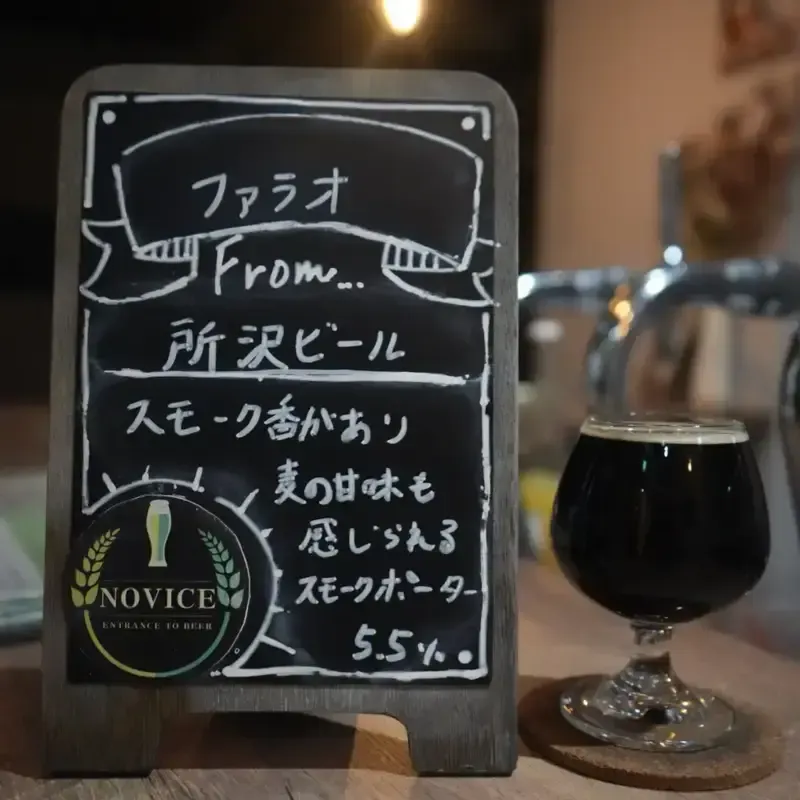 ファラオ
From...
所沢ビール
スモーク香があり
麦の甘味も
感じられる
スモークポーター
5.5%
NOVICE
ENTRANCE TO BEER